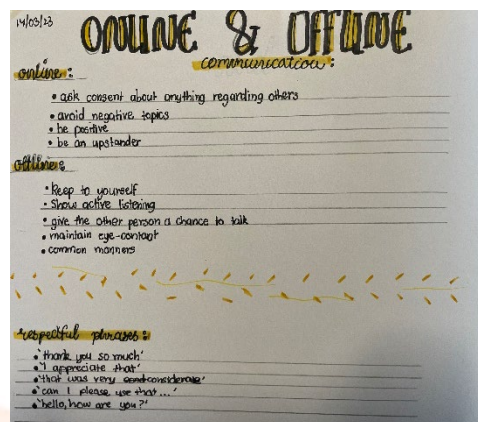 14/03/23
ONLINE & OFFLINE
communication:
online:
• ask consent about anything regarding others
• avoid negative topics
• be positive
• be an upstander
offline:
• keep to yourself
• Show active listening
• give the other person a chance to talk
• maintain eye-contact
• common manners
respectful phrases:
• 'thank you so much'
• 'I appreciate that'
• 'that was very considerate'
• 'can I please use that...'
• 'hello, how are you?'